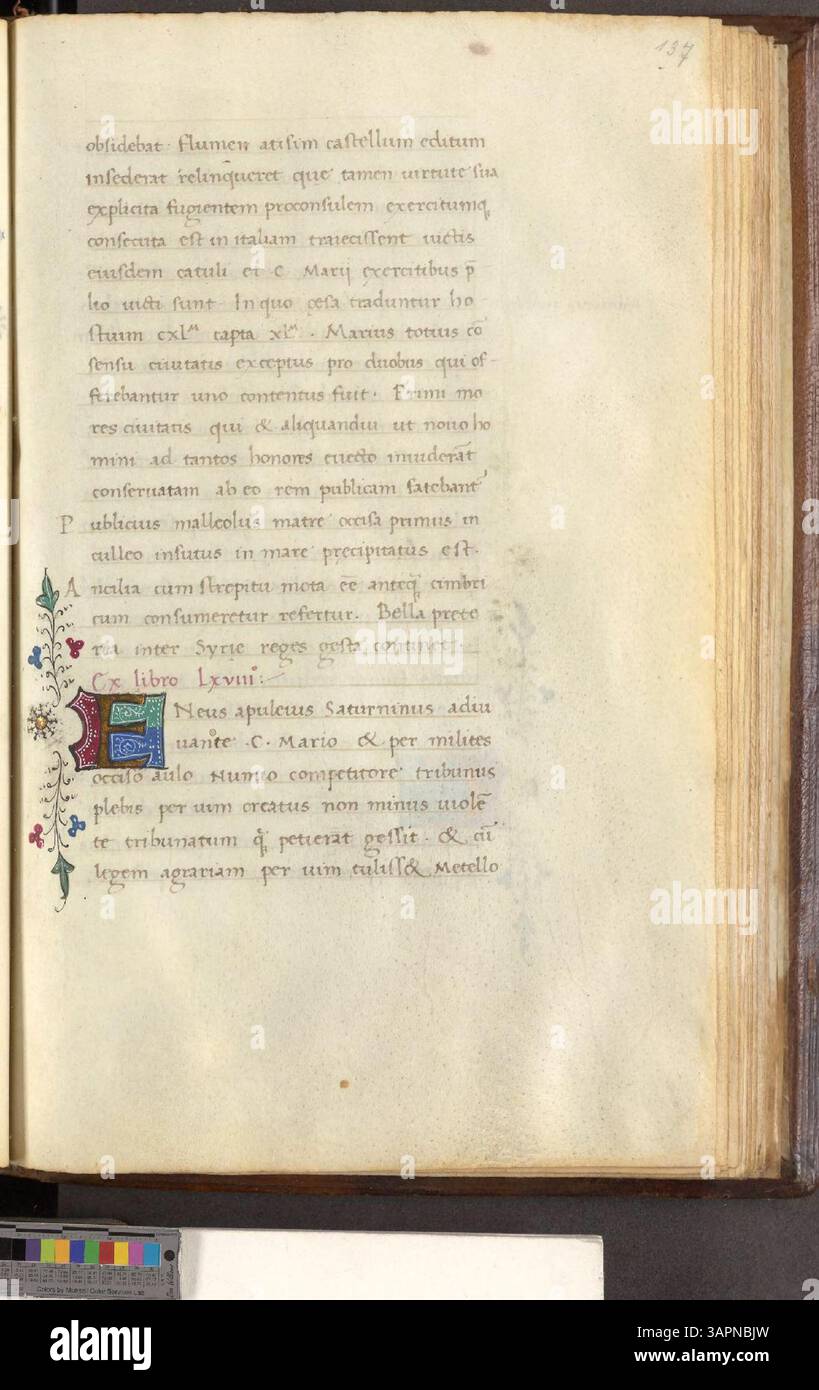 137
obsidebat flumen atisim castellum editum
insederat relinqueret que tamen uirtute sua
explicita fugientem proconsulem exercitumq;
consecuta est in italiam traiecissent iuctis
eiusdem catuli et C Marij exercitibus p̄
lio uicti sunt In quo cęsa traduntur ho
stium cxlᴹ capta xlᴹ. Marius totius cō
sensu ciuitatis exceptus pro duobus qui of-
ferebantur uno contentus fuit. Primi mo
res ciuitatis qui & aliquandiu ut nouo ho
mini ad tantos honores euecto inuiderāt
conseruatam ab eo rem publicam fatebant'
Publicius malleolus matre occisa primus in
culleo insutus in mare pręcipitatus est.
Ancilia cum strepitu mota eē anteq̄ cimbri
cum consumeretur refertur. Bella prete
rea inter Syrię reges gesta continet.
Ex libro Lxviiii°:
Neus apuleius Saturninus adiu
uante .C. Mario & per milites
occiso aulo Numio competitore tribunus
plebis per uim creatus non minus uiolē
te tribunatum q̄ petierat gessit. & cū
legem agrariam per uim tuliss& Metello
alamy
Colors by Munsell Color Services Lab
alamy
Image ID: 3APNBJW
www.alamy.com